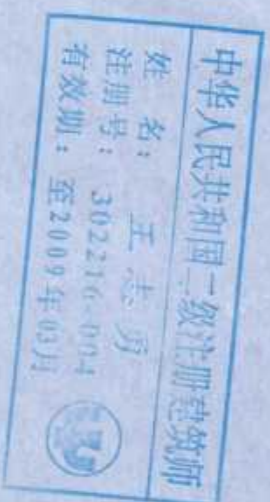 中华人民共和国二级注册建筑师
姓 名： 王志勇
注册号： 302216-004
有效期： 至2009年03月